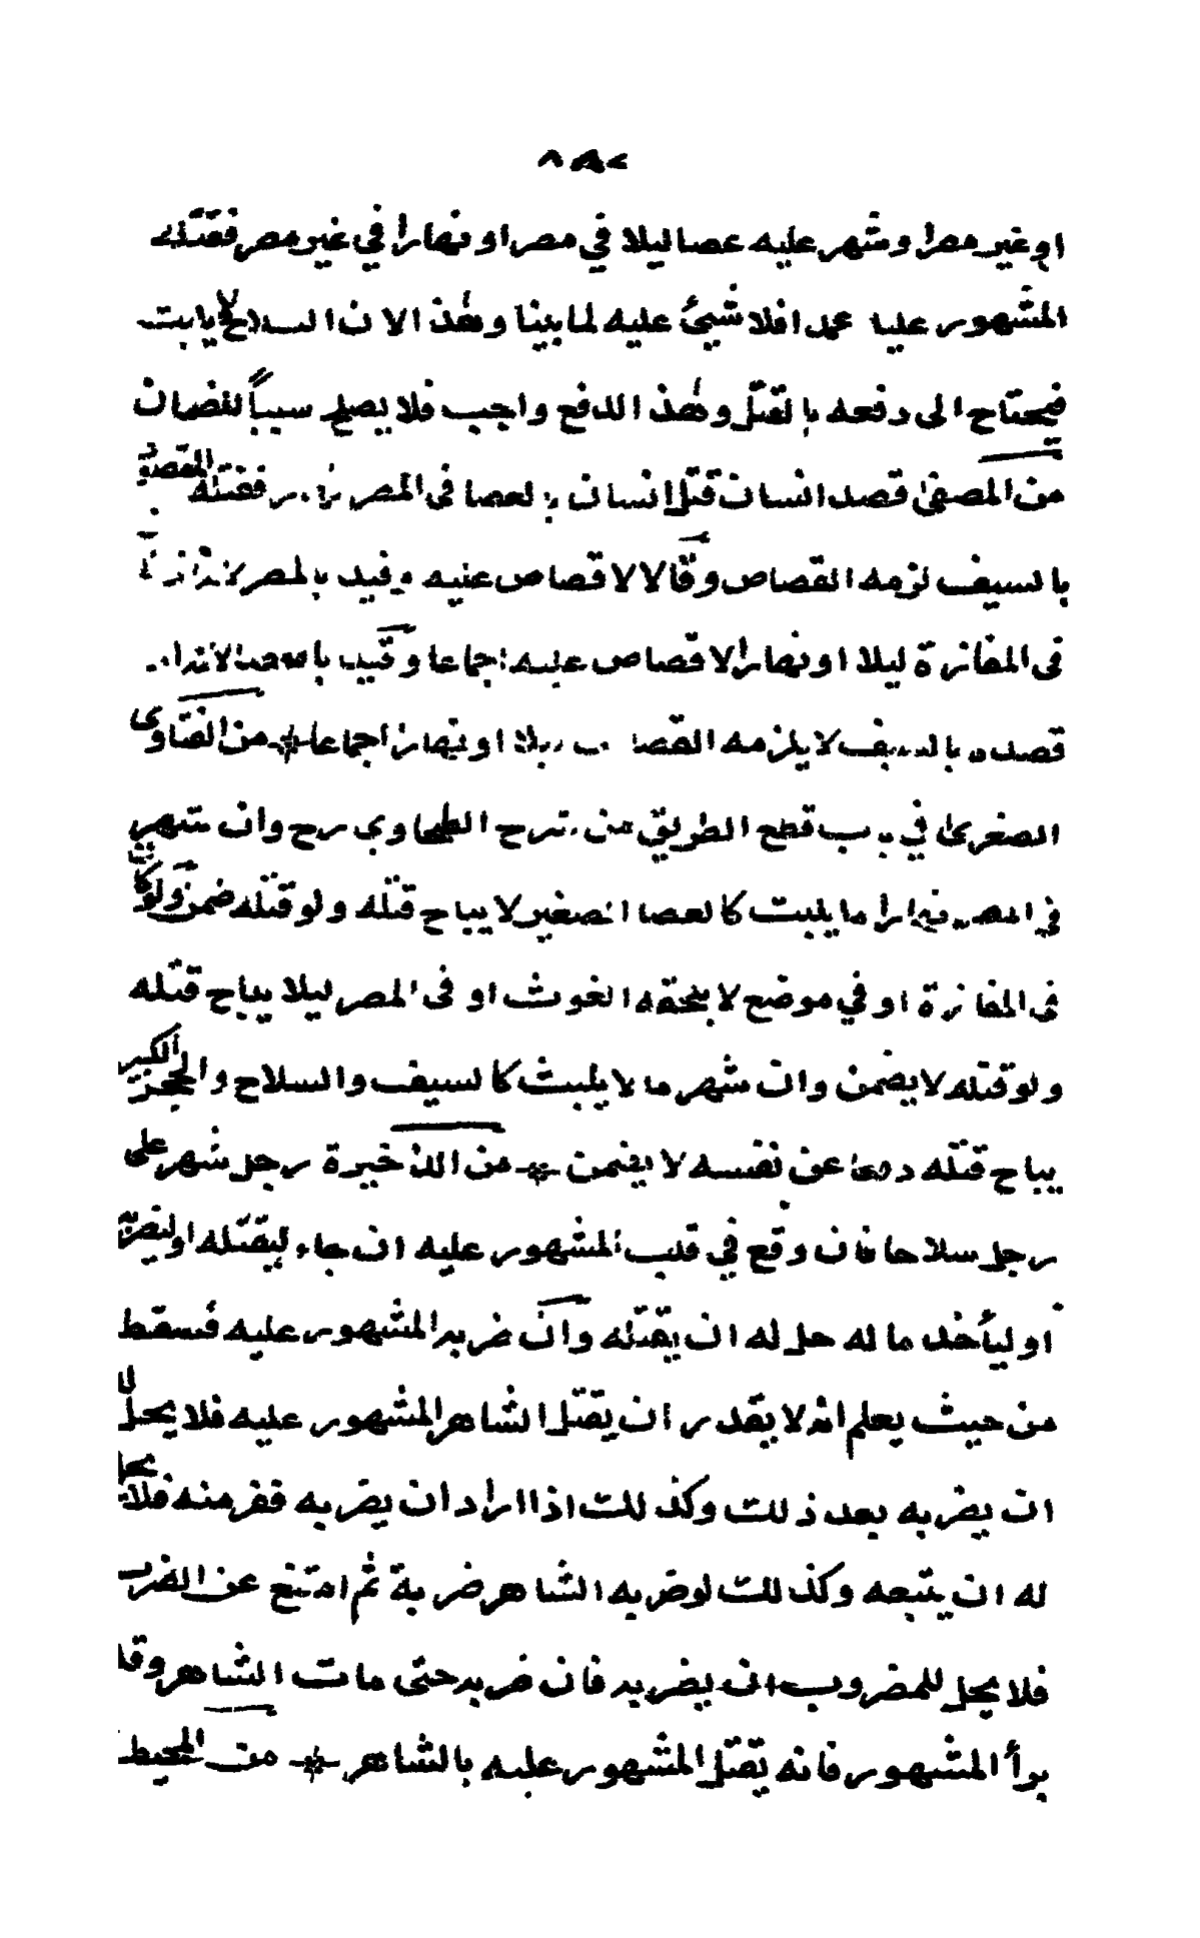 ٨٨٢
او غير مصرا وشهر عليه عصا ليلا في مصر او نهارا في غير مصر فقتله
المشهور عليه عمدا فلا شيئ عليه لما بينا وهذا لان السلاح لا يلبث
فيحتاج الى دفعه بالقتل وهذا الدفع واجب فلا يصلح سببا لضمان
من المصفى قصد انسان قتل انسان بالعصا فى المصر نهارا فقتله المقصود
بالسيف لزمه القصاص وقالا لا قصاص عليه وقيد بالمصر لانه اذا كان
فى المفازة ليلا او نهارا لا قصاص عليه اجماعا وقيد بالعصا لانه اذا
قصده بالسيف لا يلزمه القصاص ليلا او نهارا اجماعا من الفتاوى
الصغرى في باب قطع الطريق من شرح الطحاوي رح وان شهر
في المصر نهارا ما يلبث كالعصا الصغير لا يباح قتله ولو قتله ضمن ولو كان
في المفازة او في موضع لا يلحقه الغوث او فى المصر ليلا يباح قتله
ولو قتله لا يضمن وان شهر ما لا يلبث كالسيف والسلاح والحجر الكبير
يباح قتله دفعا عن نفسه لا يضمن من الذخيرة رجل شهر على
رجل سلاحا فان وقع في قلب المشهور عليه ان جاء ليقتله او ليضربه
او ليأخذ ماله حل له ان يقتله وان ضربه المشهور عليه فسقط
من حيث يعلم انه لا يقدر ان يقتل الشاهر المشهور عليه فلا يحل له
ان يضربه بعد ذلك وكذلك اذا اراد ان يضربه ففر منه فلا يحل
له ان يتبعه وكذلك لو ضربه الشاهر ضربة ثم امتنع عن الضرب
فلا يحل للمضروب ان يضربه فان ضربه حتى مات الشاهر وقد
برأ المشهور فانه يقتل المشهور عليه بالشاهر من المحيط